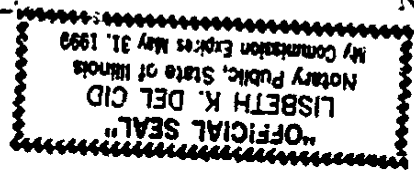 "OFFICIAL SEAL"
LISBETH K. DEL CID
Notary Public, State of Illinois
My Commission Expires May 31, 1999